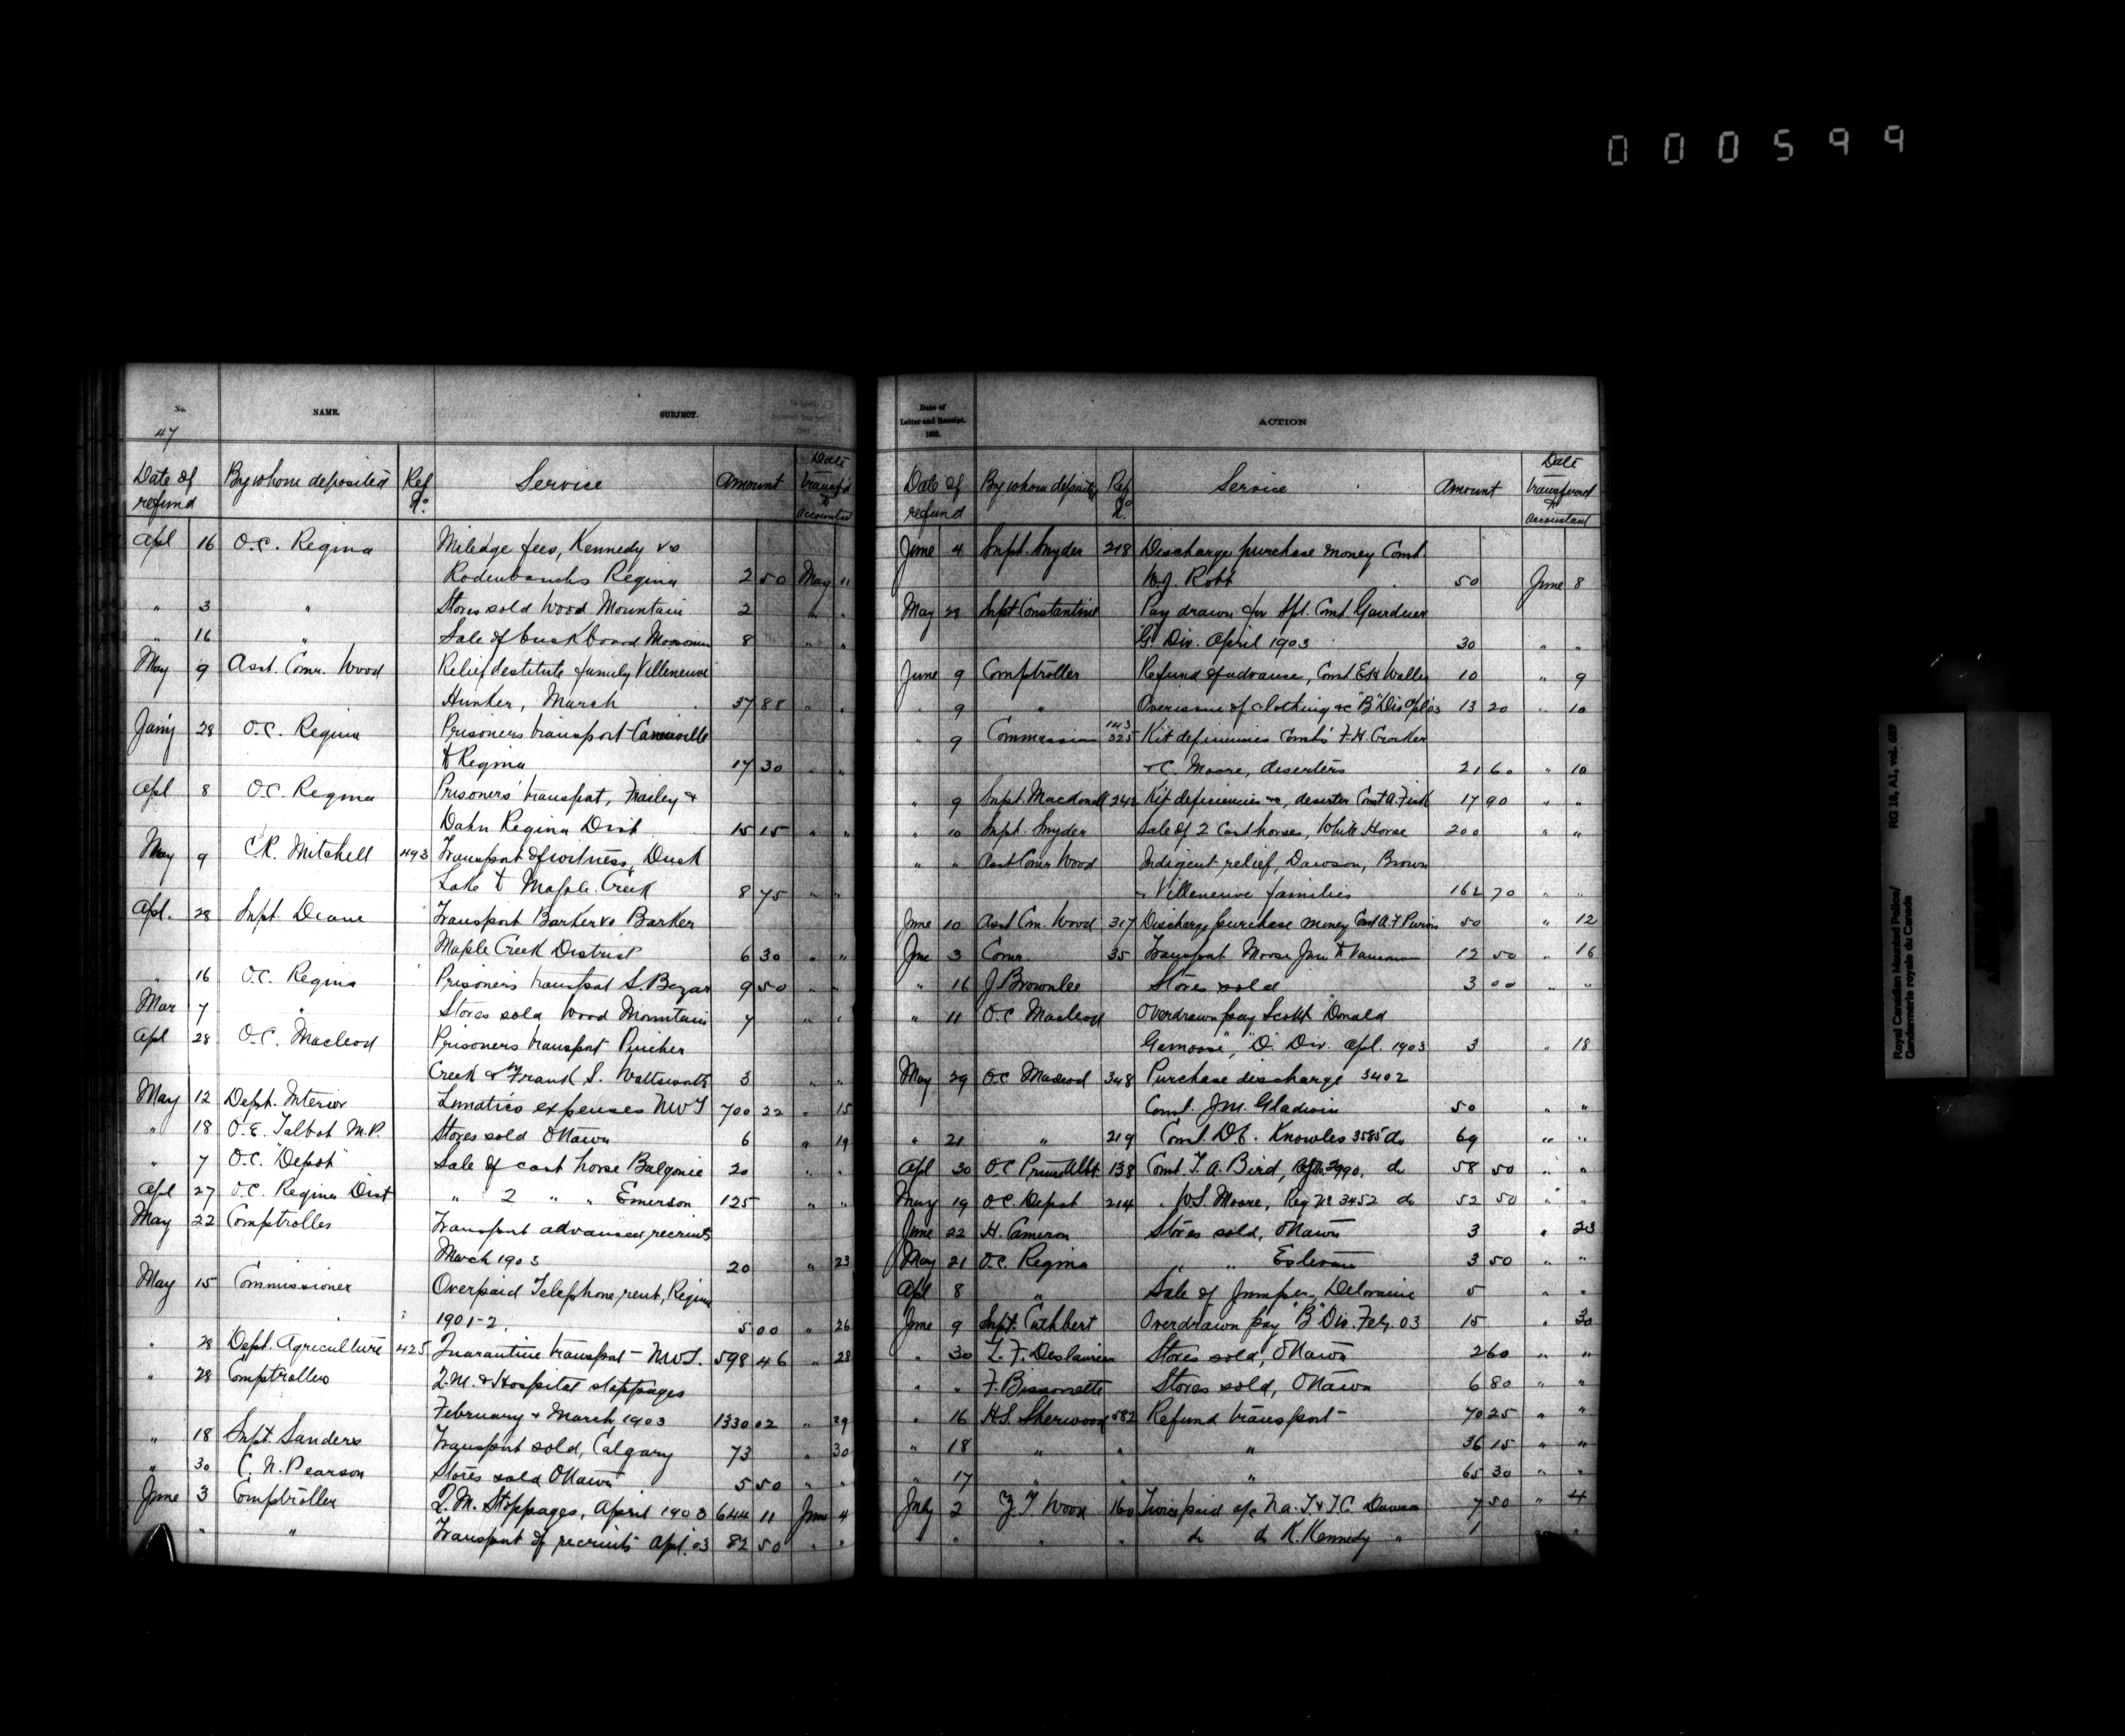 000599
No. NAME. SUBJECT.
47
Date of refund By whom deposited Ref No. Service Amount Date transf'd to Accountant
Apl 16 O.C. Regina Mileage fees, Kennedy vs
Regina 2 50 May 11
" 3 " Stores sold Wood Mountain 2 " "
" 16 " Sale of buckboard Moosomin 8 " "
May 9 Asst. Comr. Wood Relief destitute family Villeneuve
Hunker, March 37 88 " "
Jan'y 28 O.C. Regina Prisoners transport
to Regina 17 30 " "
Apl 8 O.C. Regina Prisoners' transport, Frailey &
Dahn Regina Dist 15 15 " "
May 9 C.R. Mitchell 493 Transport of witness, Duck
Lake to Maple Creek 8 75 " "
Apl. 28 Supt. Deane Transport Barker vs Barker
Maple Creek District 6 30 " "
" 16 O.C. Regina Prisoners transport S. Bazar 9 50 " "
Mar 7 " Stores sold Wood Mountain 7 " "
Apl 28 O.C. Macleod Prisoners transport Pincher
Creek & Frank S. Wattsworth 3 " "
May 12 Dept. Interior Lunatics expenses NWT 700 22 " 15
" 18 O.E. Talbot M.P. Stores sold Ottawa 6 " 19
" 7 O.C. "Depot" Sale of cast horse Balgonie 20 " "
Apl 27 O.C. Regina Dist " 2 " " Emerson 125 " "
May 22 Comptroller Transport advanced recruits
March 1903 20 " 23
May 15 Commissioner Overpaid Telephone rent, Regina
1901-2. 5 00 " 26
" 28 Dept. Agriculture 425 Quarantine transport - NWT. 598 46 " 28
" 28 Comptroller Q.M. & Hospital stoppages
February & March 1903 1330 02 " 29
" 18 Supt. Sanders Transport sold, Calgary 73 " 30
" 30 C. N. Pearson Stores sold Ottawa 5 50 " "
June 3 Comptroller Q.M. Stoppages, April 1903 644 11 June 4
" " " Transport of recruits Apl. 03 82 50 " "
Date of Letter and Receipt. 190 . ACTION
Date of refund By whom deposited Ref No. Service Amount Date transferred to Accountant
June 4 Supt. Snyder 218 Discharge purchase money Const
W.J. Robb 50 June 8
May 23 Supt Constantine Pay drawn for Spl. Const. Gairdner
"G" Div. April 1903 30 " "
June 9 Comptroller Refund of advance, Const 10 " 9
" 9 " Overissue of clothing &c "B" Div Apl '03 13 20 " 10
" 9 143 325 Kit deficiencies Consts' F.H. Crocker
& C. Moore, deserters 21 60 " 10
" 9 Supt. Macdonell 242 Kit deficiencies &c, deserter Const A. Fisk 17 90 " "
" 10 Supt. Snyder Sale of 2 Cast horses, White Horse 200 " "
" " Asst Comr Wood Indigent relief, Dawson, Brown
& Villeneuve families 162 70 " "
June 10 Asst Com. Wood 317 Discharge purchase money Const A.F. 50 " 12
June 3 Comr. 35 Transport Moose Jaw to 12 50 " 16
" 16 J. Brownlee Stores sold 3 00 " "
" 11 O.C Macleod Overdrawn pay Scout "Donald
", "D" Div. Apl. 1903 3 " 18
May 29 O.C Macleod 348 Purchase discharge 3402
Const. J.M. Gladwin 50 " "
" 21 " 219 Const. D.E. Knowles 3585 do 69 " "
Apl 30 O.C Prince Albt. 138 Const. T. A. Bird, do 58 50 " "
May 19 O.C. Depot 214 " W.S. Moore, Reg No 3452 do 52 50 " "
June 22 H. Cameron Stores sold, Ottawa 3 " 23
May 21 O.C. Regina " " Estevan 3 50 " "
Apl 8 " Sale of Jumper, Deloraine 5 " "
June 9 Supt. Cuthbert Overdrawn pay "B" Div. Feby. 03 15 " 30
" 30 Stores sold, Ottawa 2 60 " "
" " F. Bissonette Stores sold, Ottawa 6 80 " "
" 16 H.S. Sherwood 582 Refund transport - 70 25 " "
" 18 " " " 36 15 " "
" 17 " " " 65 30 " "
July 2 Z. T. Wood 160 Twice paid a/c N.A.T & T.C. Dawson 7 50 " 4
" " " " do do K. Kennedy " 1 " "
Royal Canadian Mounted Police/ RG 18, A1, vol. 699
Gendarmerie royale du Canada